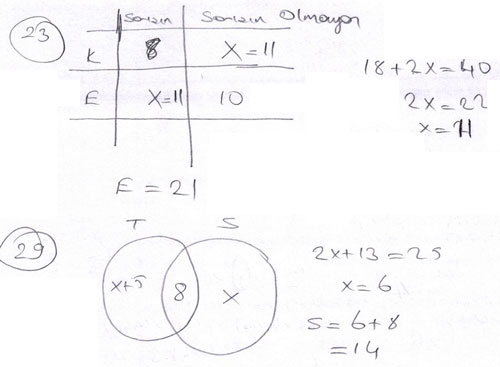 23
Sarışın Sarışın Olmayan
K 8 X = 11
E X = 11 10
18 + 2x = 40
2x = 22
x = 11
E = 21
29
T S
x+5 8 x
2x + 13 = 25
x = 6
S = 6 + 8
= 14